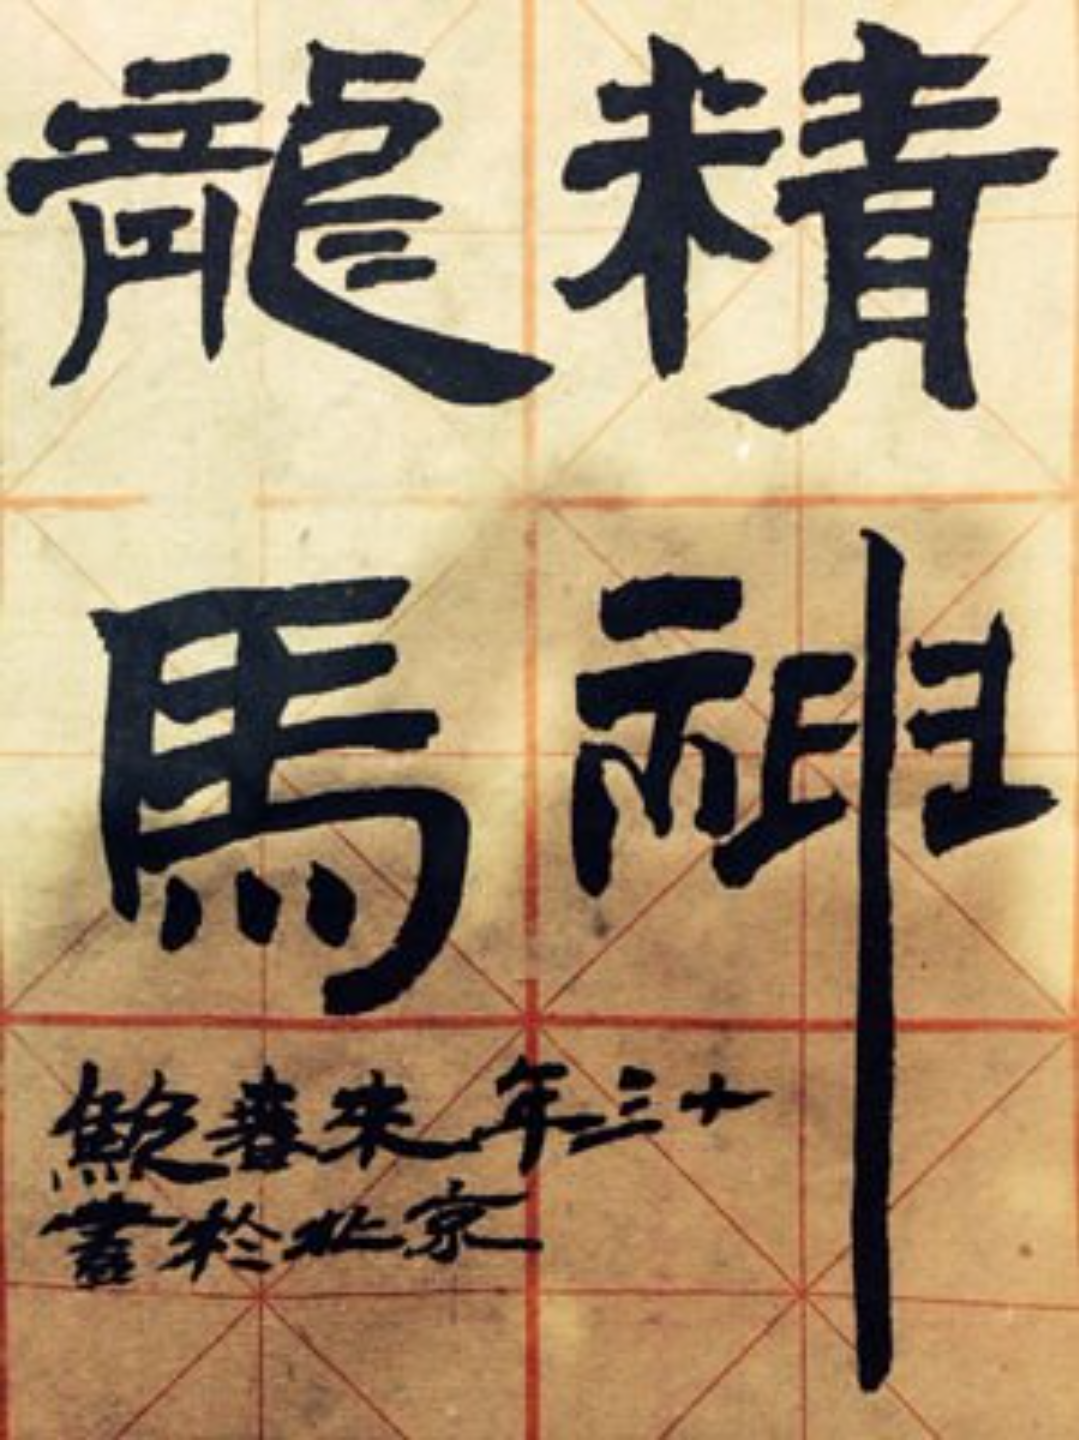 龍馬
精神
鮑春來年三十
書於北京